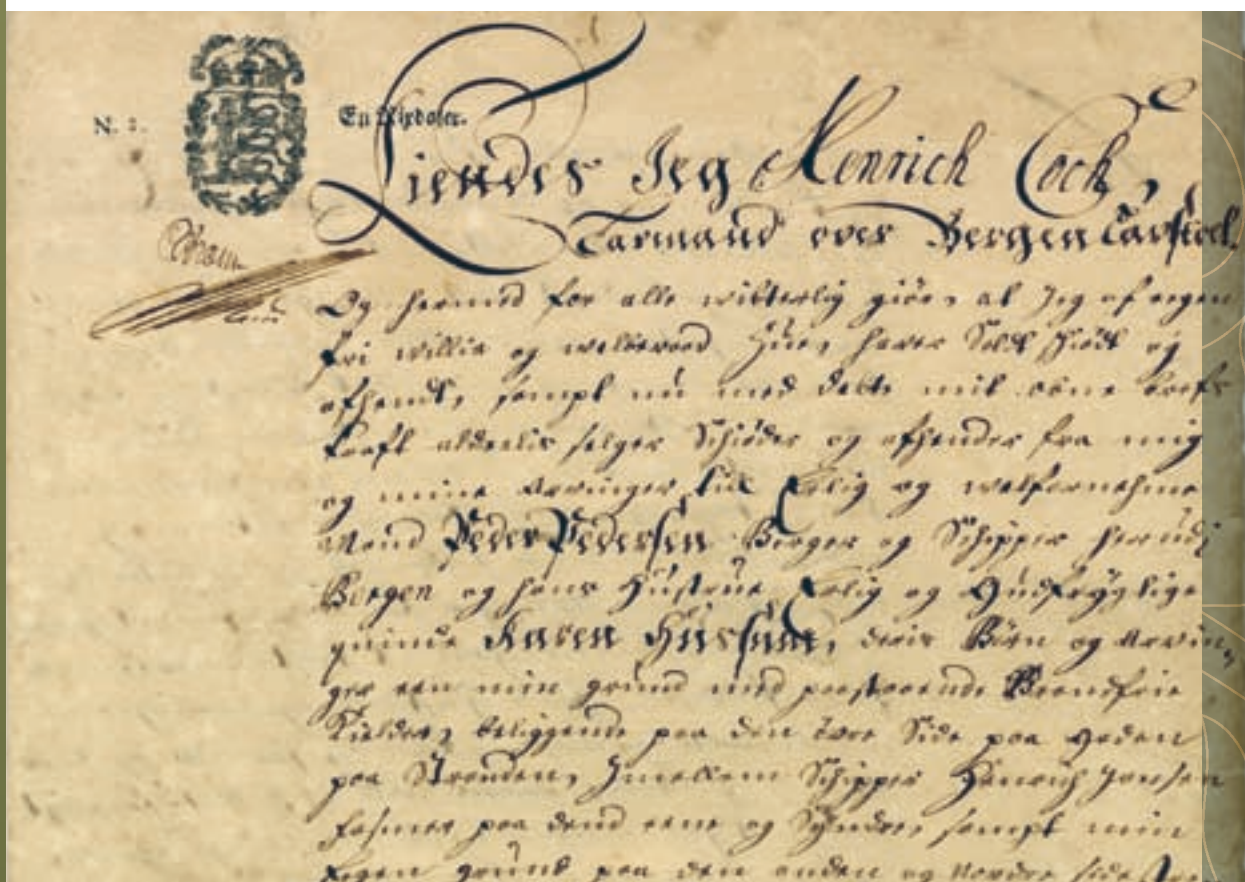 N. 2.
En Rixdaler.
Kiendes Jeg Henrich Cock,
Laumand over Bergen Laustoel.
Og hermed for alle witterlig giör, at Jeg af eegen
fri willie og welberaad Hue, haver Soldt Skiödt og
afhendt, sampt nu med dette mit obne brefs
kraft aldeelis selger Schiöder og afhender fra mig
og mine Arvinger, til Erlig og welfornehme
Mand Peder Pedersen Borger og Schipper herudj
Bergen og hans Hustrue, Erlig og Gudfrygtige
quinde Karen, deris Börn og Arvin,
ger een min grund med paastaaende Brandfrie
Kielder, beliggende paa den övre Side paa
paa Stranden, Imellem Schipper Henrich Jansen
paa dend eene og Syndre, sampt min
Eegen grund paa den anden og Nordre side